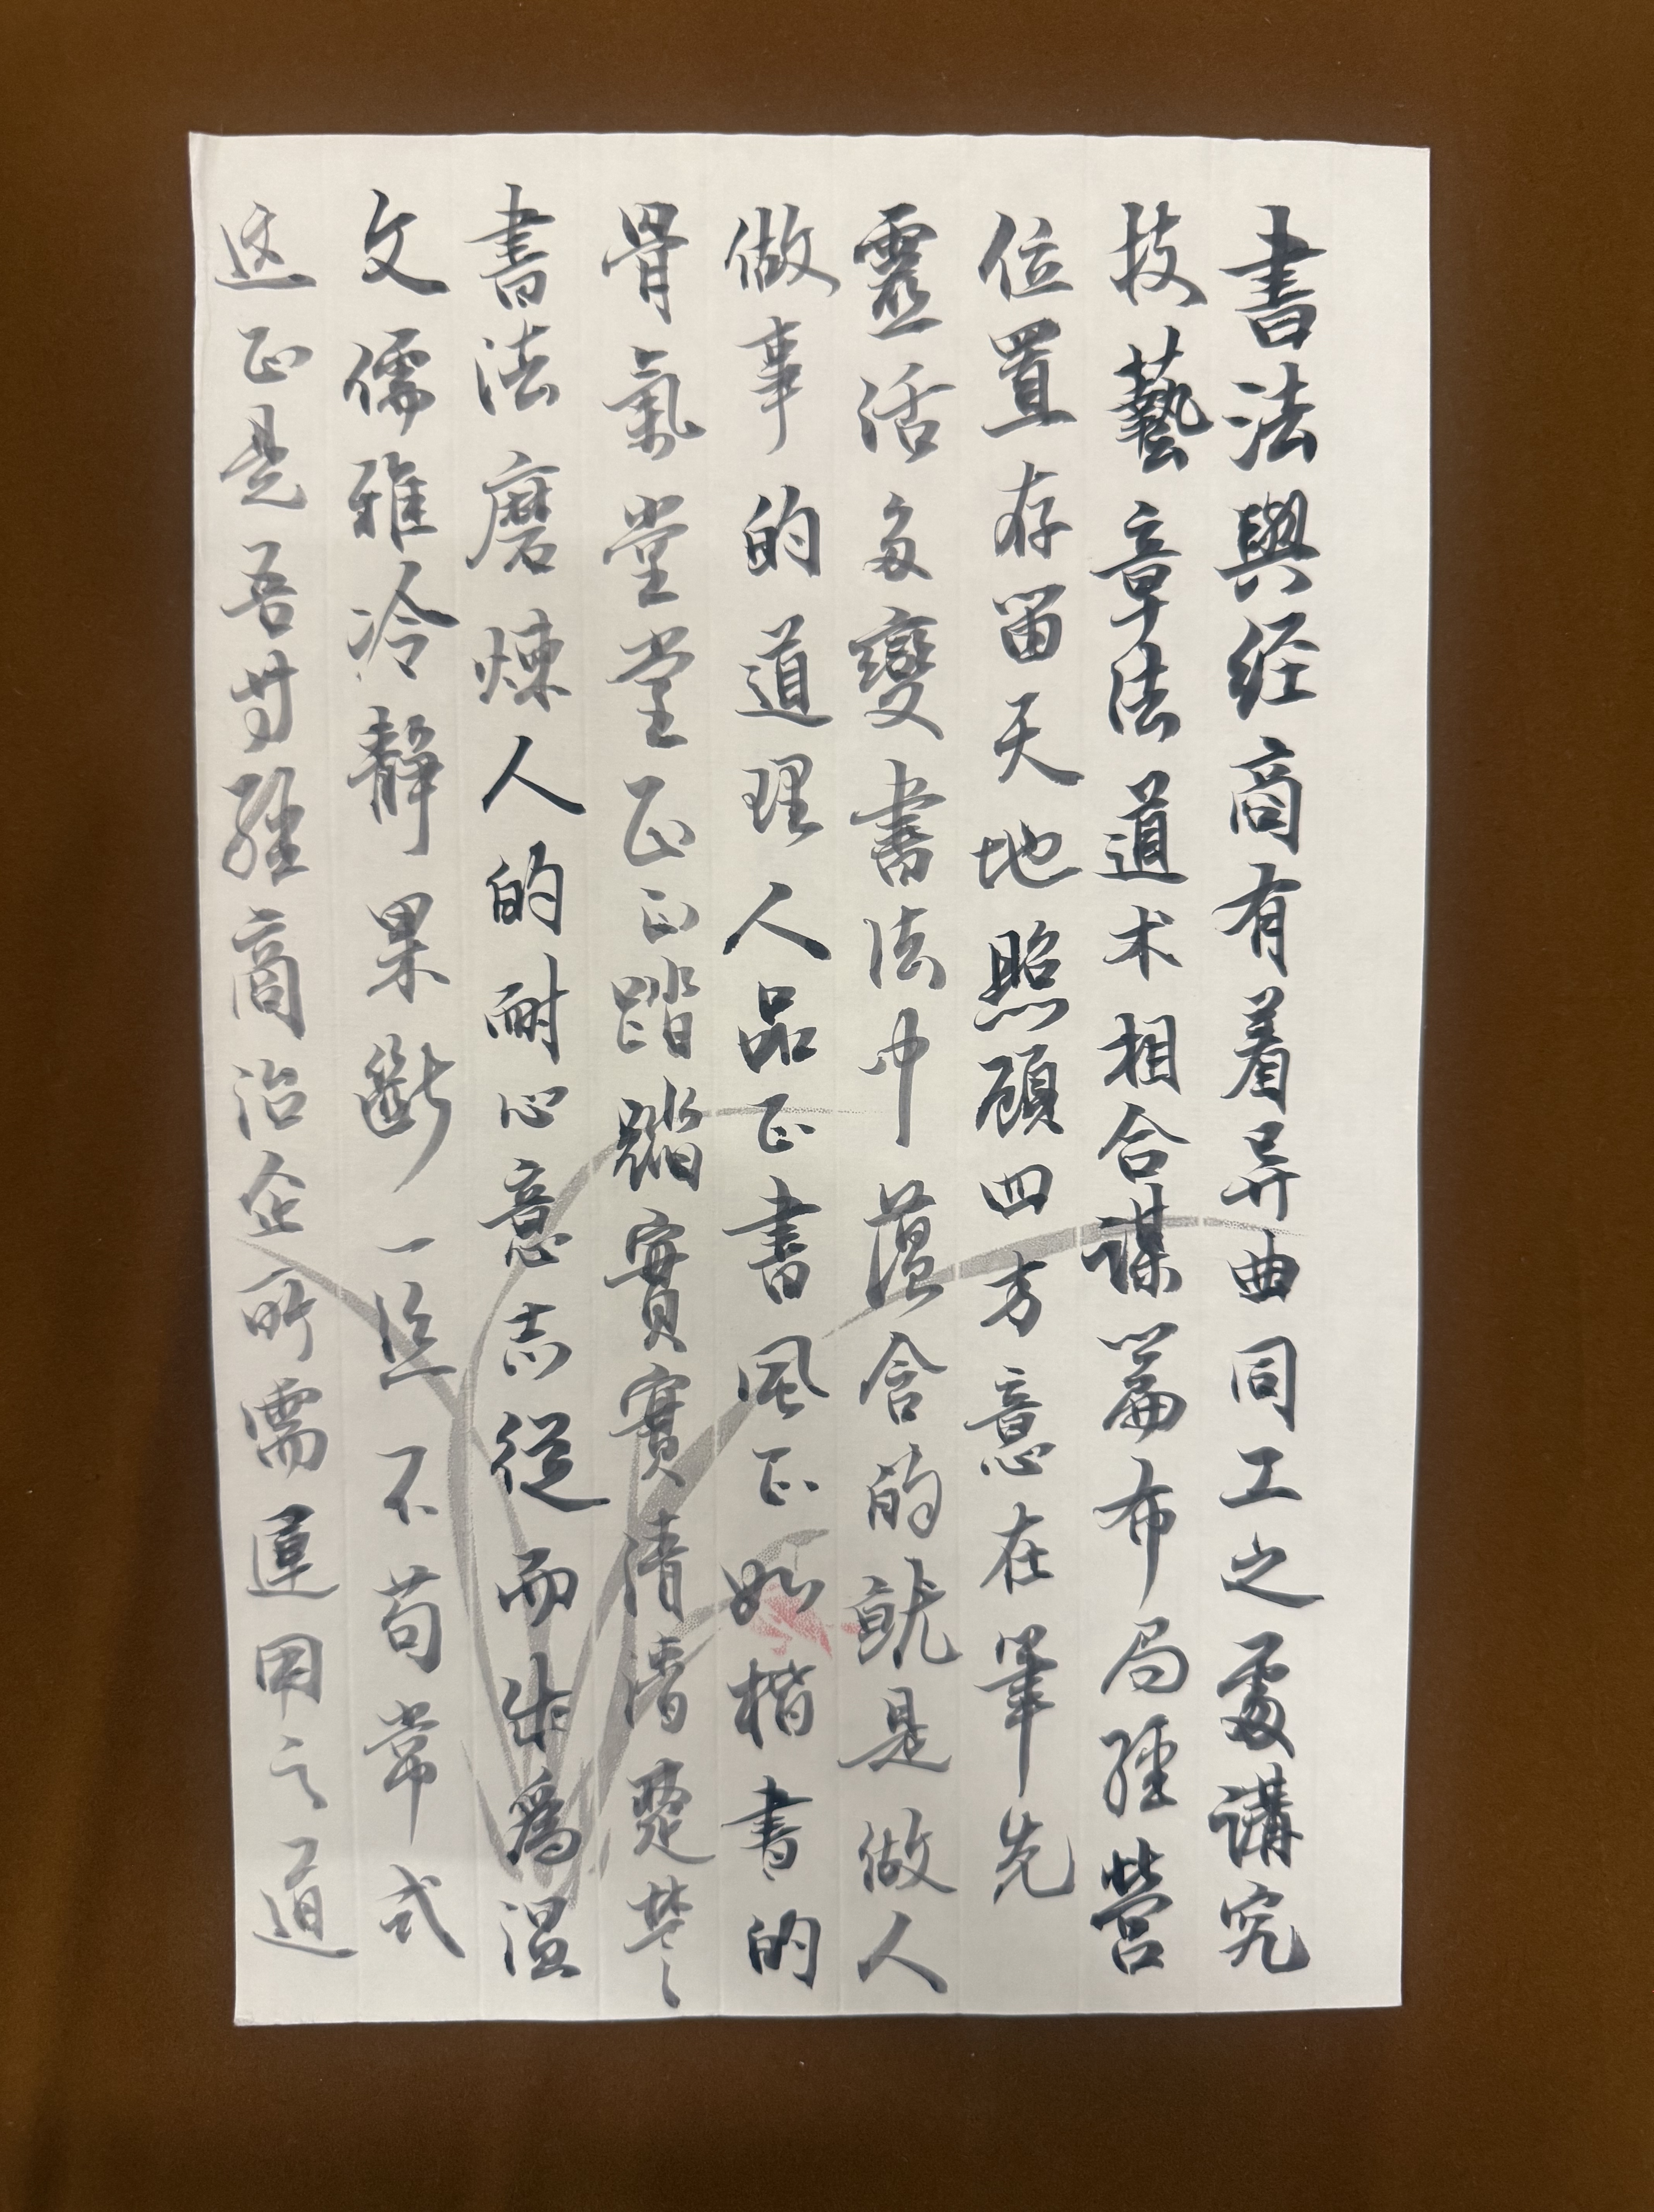 書法與经商有着异曲同工之處講究
技藝章法道术相合谋篇布局經营
位置存留天地照顾四方意在筆先
靈活多變書法中蕴含的就是做人
做事的道理人品正書風正如楷書的
骨氣堂堂正正踏踏實實清清楚楚
書法磨煉人的耐心意志從而出爲温
文儒雅冷靜果斷一丝不苟常式
这正是吾对經商治企所需運用之道